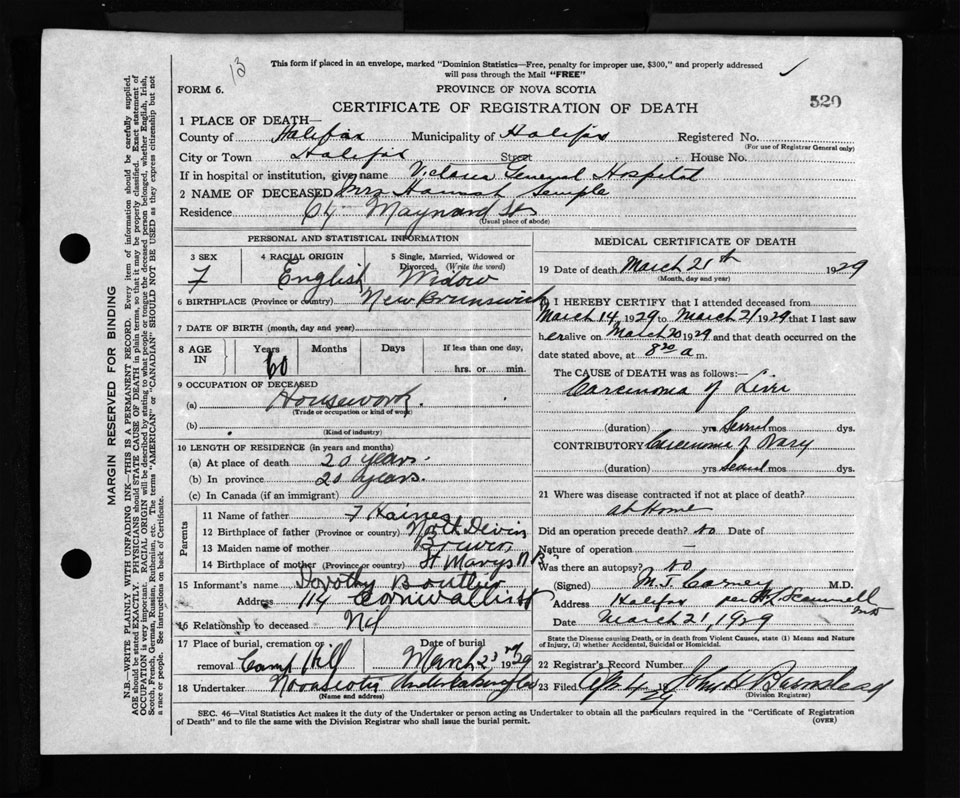 13
This form if placed in an envelope, marked "Dominion Statistics—Free, penalty for improper use, $300," and properly addressed
will pass through the Mail "FREE"
FORM 6.
PROVINCE OF NOVA SCOTIA
CERTIFICATE OF REGISTRATION OF DEATH
520
1 PLACE OF DEATH—
County of Halifax Municipality of Halifax Registered No.
(For use of Registrar General only)
City or Town Halifax Street House No.
If in hospital or institution, give name Victoria General Hospital
2 NAME OF DECEASED Mrs Hannah Semple
Residence 64 Maynard St
(Usual place of abode)
PERSONAL AND STATISTICAL INFORMATION
3 SEX 4 RACIAL ORIGIN 5 Single, Married, Widowed or
Divorced. (Write the word)
F English Widow
6 BIRTHPLACE (Province or country) New Brunswick
7 DATE OF BIRTH (month, day and year)
8 AGE IN Years Months Days If less than one day,
60 hrs. or min.
9 OCCUPATION OF DECEASED
(a) Housework
(Trade or occupation or kind of work)
(b)
(Kind of industry)
10 LENGTH OF RESIDENCE (in years and months)
(a) At place of death 20 years.
(b) In province 20 years.
(c) In Canada (if an immigrant)
Parents
11 Name of father F Haines
12 Birthplace of father (Province or country) North Devin
13 Maiden name of mother Brewer
14 Birthplace of mother (Province or country) St Marys N.B.
15 Informant's name Dorothy Boutlier
Address 114 Cornwallis St
16 Relationship to deceased Nil
17 Place of burial, cremation or Date of burial
removal Camp Hill March 23rd 1929
18 Undertaker Nova Scotia Undertaking Co
(Name and address)
MEDICAL CERTIFICATE OF DEATH
19 Date of death March 21th 1929
(Month, day and year)
20 I HEREBY CERTIFY that I attended deceased from
March 14, 1929 to March 21 1929 that I last saw
her alive on March 20 1929 and that death occurred on the
date stated above, at 8 a m.
The CAUSE OF DEATH was as follows:—
Carcinoma of Liver
(duration) yrs. Several mos. dys.
CONTRIBUTORY Carcinoma of Ovary
(duration) yrs Several mos. dys.
21 Where was disease contracted if not at place of death?
at Home
Did an operation precede death? No Date of
Nature of operation —
Was there an autopsy? No
(Signed) M.J. Carney M.D.
Address Halifax per Scammell
Date March 21, 1929
State the Disease causing Death, or in death from Violent Causes, state (1) Means and Nature
of Injury, (2) whether Accidental, Suicidal or Homicidal.
22 Registrar's Record Number
23 Filed Apl 4 19 John H Barnstead
(Division Registrar)
SEC. 46—Vital Statistics Act makes it the duty of the Undertaker or person acting as Undertaker to obtain all the particulars required in the "Certificate of Registration
of Death" and to file the same with the Division Registrar who shall issue the burial permit.
(OVER)
MARGIN RESERVED FOR BINDING
N.B.—WRITE PLAINLY WITH UNFADING INK—THIS IS A PERMANENT RECORD. Every item of information should be carefully supplied.
AGE should be stated EXACTLY. PHYSICIANS should STATE CAUSE OF DEATH in plain terms, so that it may be properly classified. Exact statement of
OCCUPATION is very important. RACIAL ORIGIN will be described by stating to what people or tongue the deceased person belonged, whether English, Irish,
Scotch, French, German, Russian, Ruthenian, etc. The terms "AMERICAN" or "CANADIAN" SHOULD NOT BE USED as they express citizenship but not
a race or people. See instructions on back of Certificate.